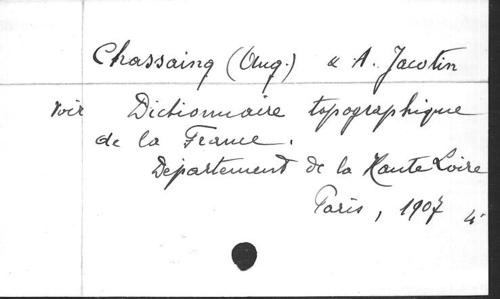 Chassaing (Aug.) & A. Jacotin
voir Dictionnaire topographique
de la France.
Département de la Haute Loire
Paris, 1907 4°